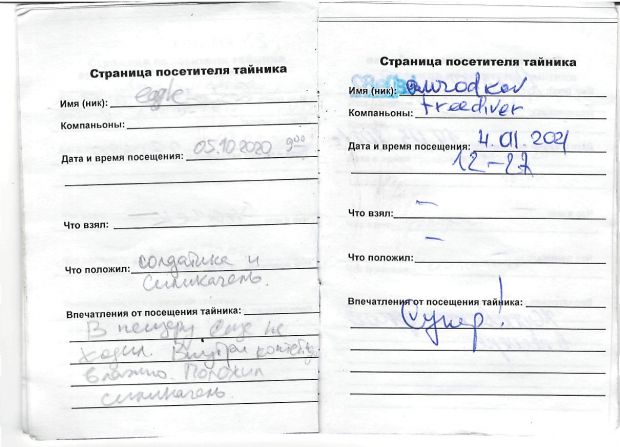 Страница посетителя тайника
Имя (ник): eagle
Компаньоны:
Дата и время посещения: 05.10.2020 9:00
Что взял: —
Что положил: солдатика и
силикагель.
Впечатления от посещения тайника:
В пещеру еще не
ходил. Внутри контейн.
влажно. Положил
силикагель.
Страница посетителя тайника
Имя (ник):
Компаньоны: freediver
Дата и время посещения: 4.01.2021
12-27
Что взял: —
Что положил: —
Впечатления от посещения тайника:
Супер!